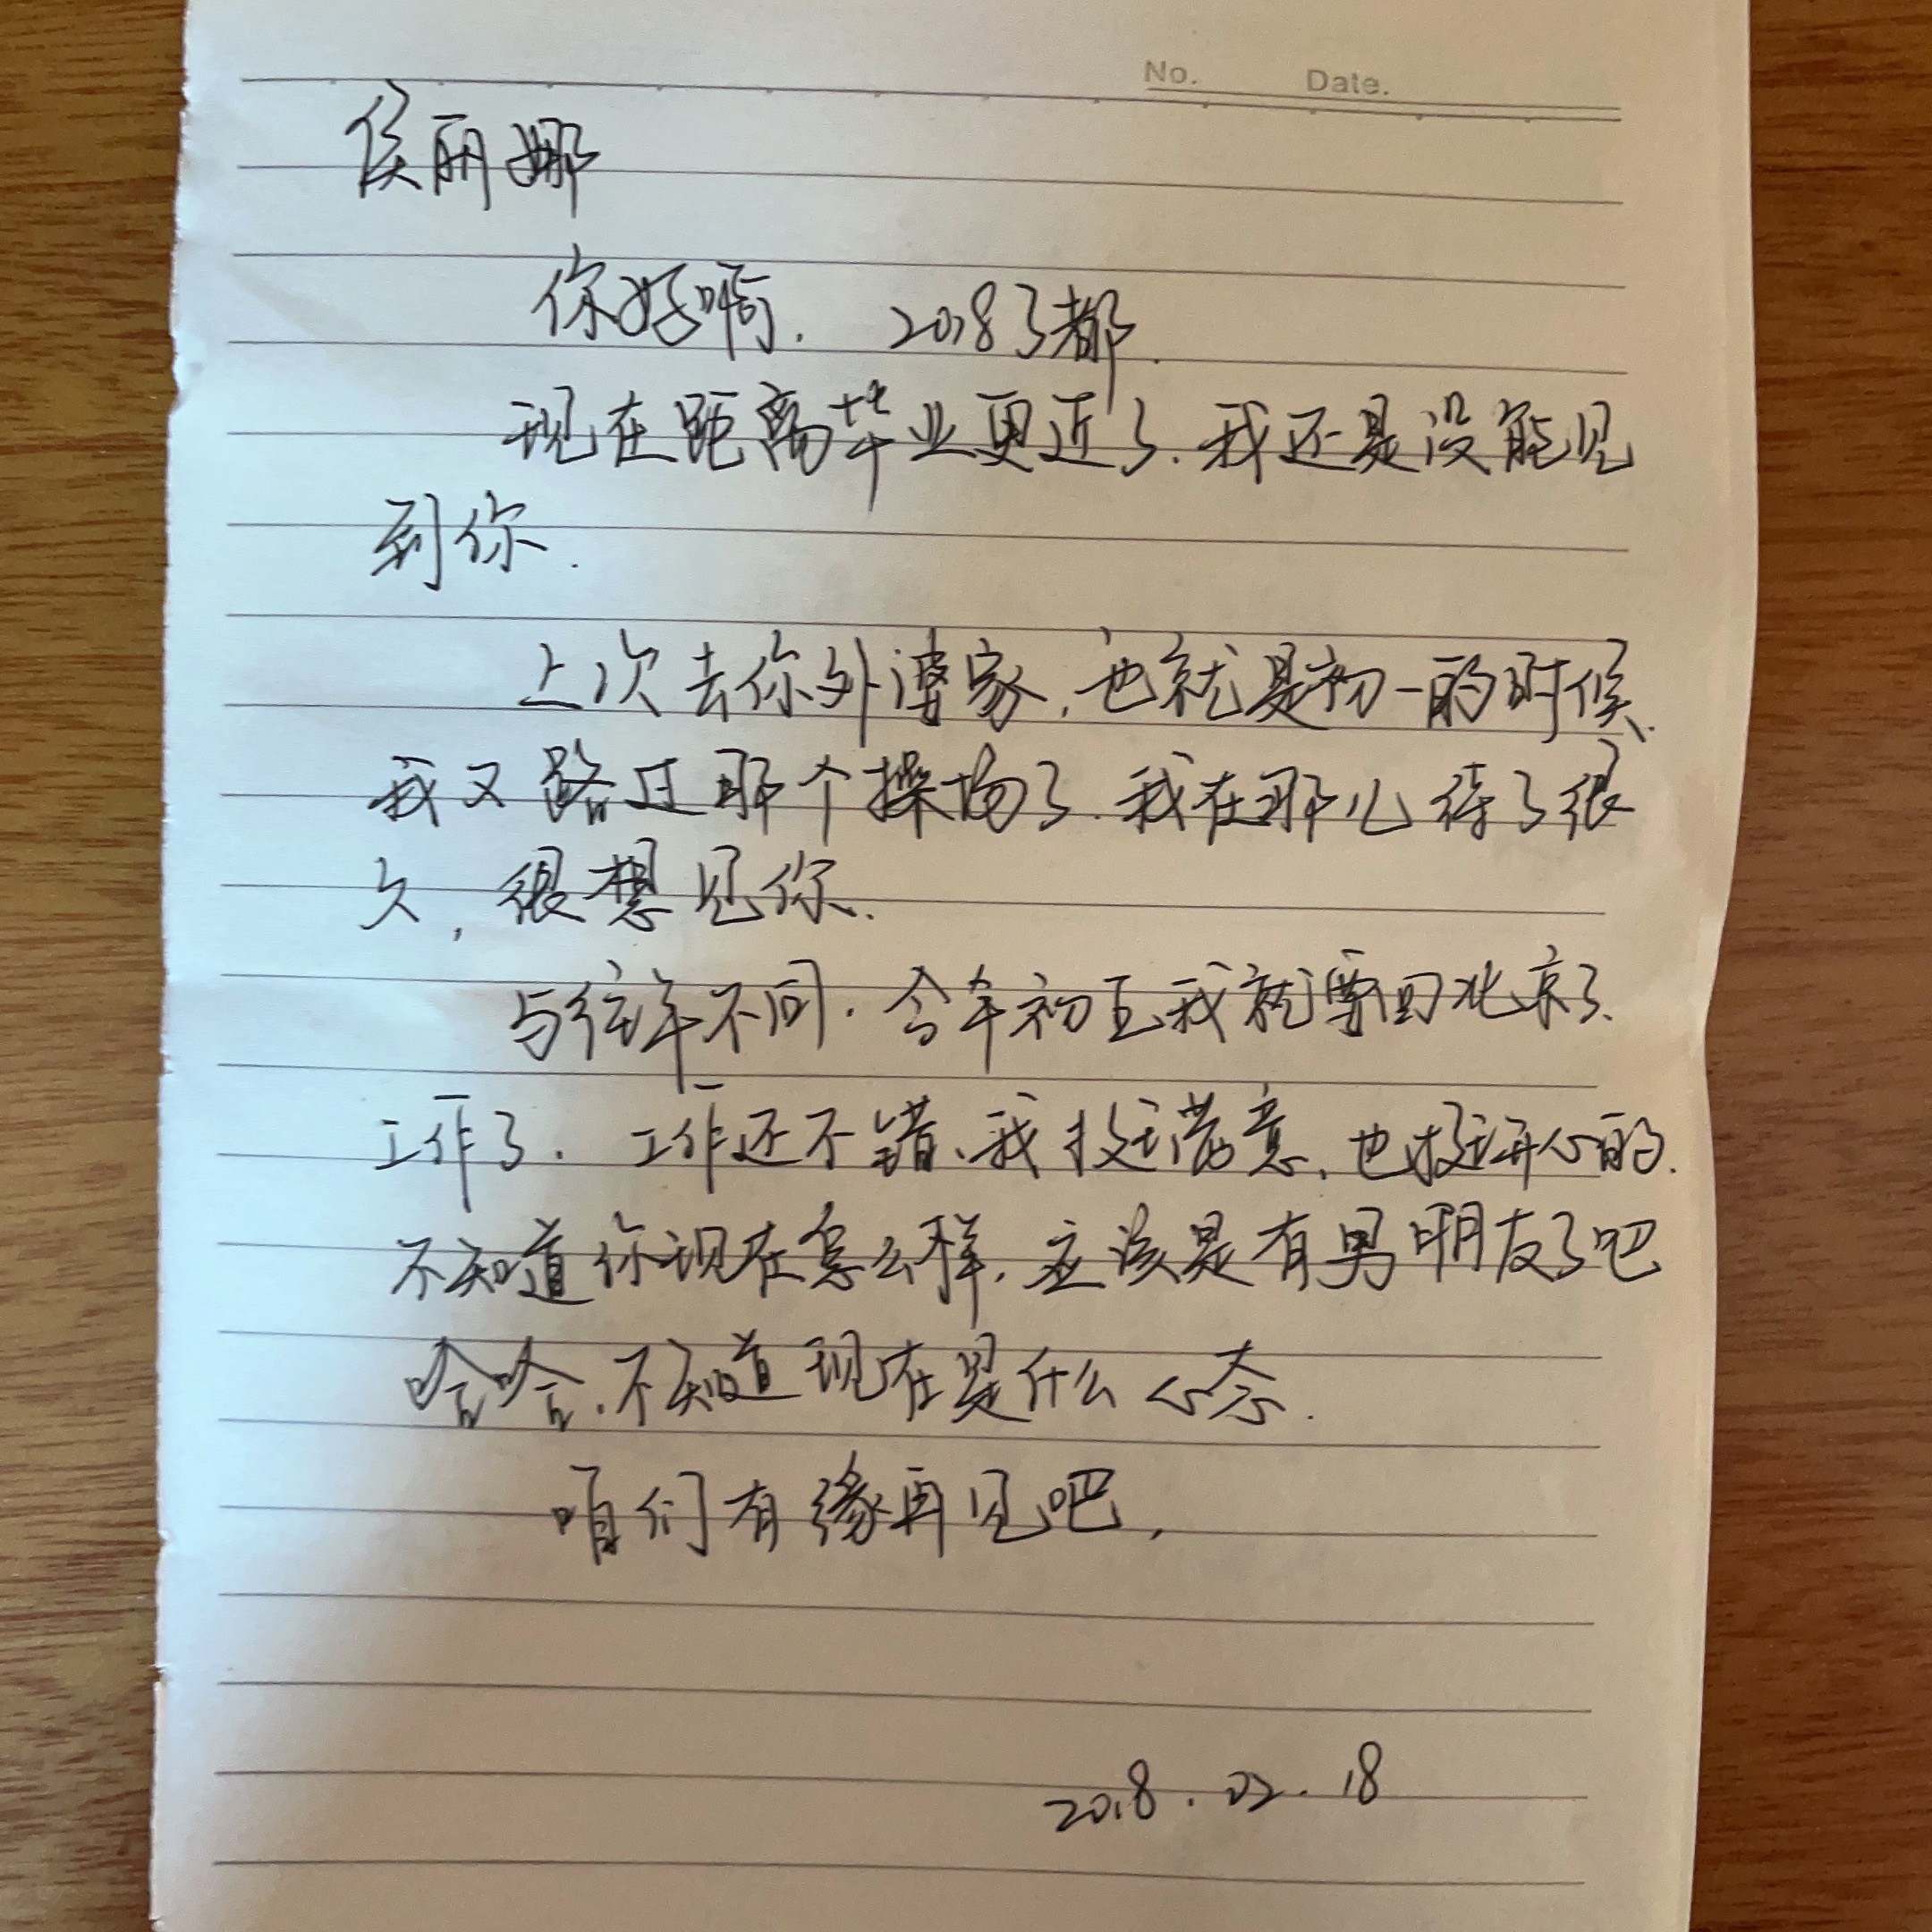 No. Date.
侯丽娜
你好啊. 2018了都.
现在距离毕业更近了.我还是没能见
到你.
上次去你外婆家,也就是初一的时候.
我又路过那个操场了.我在那儿待了很
久,很想见你.
与往年不同.今年初五我就要回北京了.
工作了. 工作还不错、我挺满意,也挺开心的.
不知道你现在怎么样.应该是有男朋友了吧
哈哈.不知道现在是什么心态.
咱们有缘再见吧,
2018.02.18